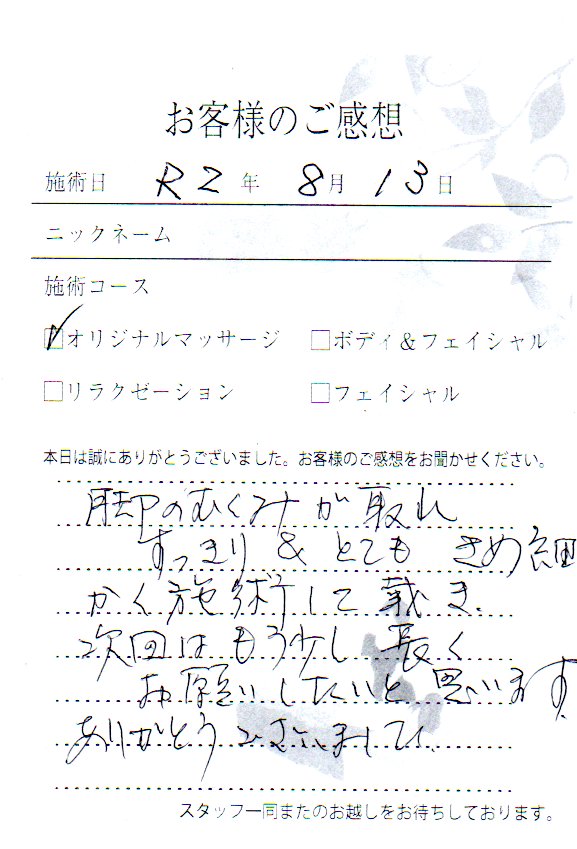 お客様のご感想
施術日 R2年 8月 13日
ニックネーム
施術コース
☑オリジナルマッサージ □ボディ&フェイシャル
□リラクゼーション □フェイシャル
本日は誠にありがとうございました。お客様のご感想をお聞かせください。
脚のむくみが取れ
すっきり & とても きめ細
かく施術して戴き
次回はもう少し長く
お願いしたいと思います
ありがとうございました
スタッフ一同またのお越しをお待ちしております。